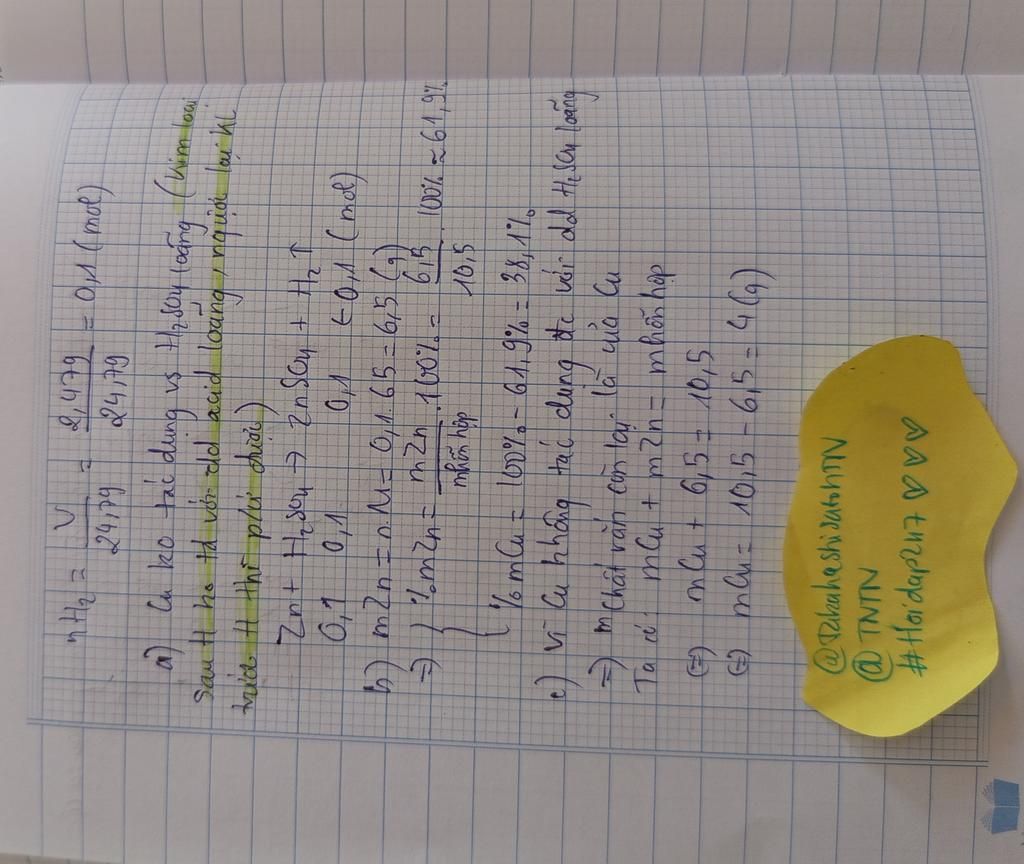 nH₂ = V/24,79 = 2,479/24,79 = 0,1 (mol)
a) Cu ko tác dụng vs H₂SO₄ loãng (kim loại
sau H ko td với dd acid loãng, ngược lại kl
trước H thì pứ được)
Zn + H₂SO₄ → ZnSO₄ + H₂ ↑
0,1 0,1 0,1 ← 0,1 (mol)
b) mZn = n.M = 0,1.65 = 6,5 (g)
=> { %mZn = mZn/mhỗn hợp . 100% = 6,5/10,5 . 100% ≈ 61,9%
{ %mCu = 100% - 61,9% = 38,1%
c) Vì Cu không tác dụng đc với dd H₂SO₄ loãng
=> m chất rắn còn lại là của Cu
Ta có: mCu + mZn = mhỗn hợp
(=) mCu + 6,5 = 10,5
(=) mCu = 10,5 - 6,5 = 4 (g)
@TakahashisatoNTN
@TNTN
#Hoidap247 ♡ ♡ ♡